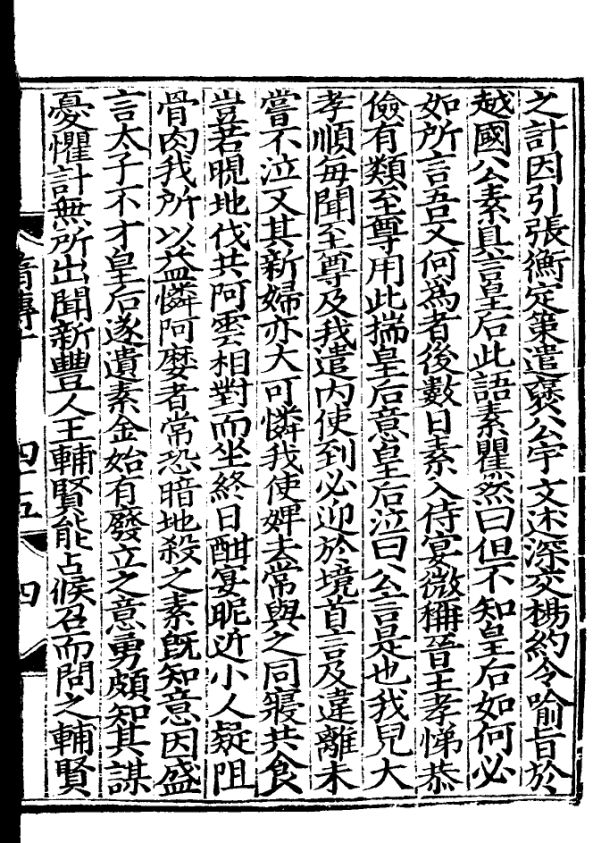 之計因引張衡定策遣襃公宇文述深交楊約令喻旨於
越國公素具言皇后此語素瞿然曰但不知皇后如何必
如所言吾又何爲者後數日素入侍宴微稱晉王孝悌恭
儉有類至尊用此揣皇后意皇后泣曰公言是也我兒大
孝順每聞至尊及我遣内使到必迎於境首言及違離未
嘗不泣又其新婦亦大可憐我使婢去常與之同寢共食
豈若晛地伐共阿雲相對而坐終日酣宴昵近小人疑阻
骨肉我所以益憐阿㦄者常恐暗地殺之素旣知意因盛
言太子不才皇后遂遺素金始有廢立之意勇頗知其謀
憂懼計無所出聞新豐人王輔賢能占候召而問之輔賢
四十五
四